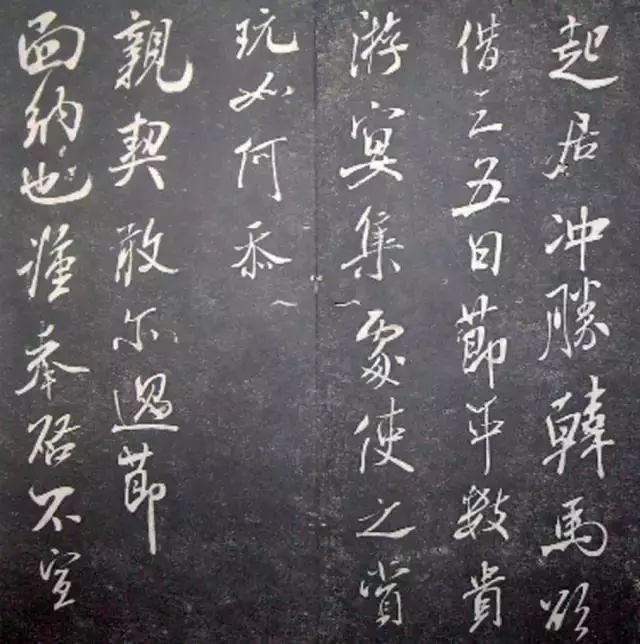 起居冲勝韓馬欲
借三五日節數貴
游宴集處使之賞
玩如何忝
親契敢尔過節
面納也謹奉啓不宣